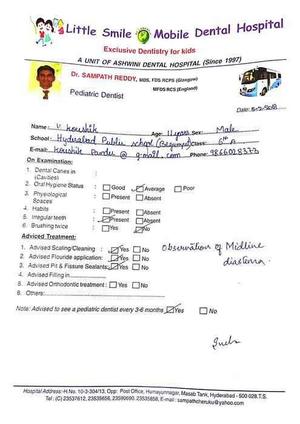 Little Smile Mobile Dental Hospital
Exclusive Dentistry for kids
A UNIT OF ASHWINI DENTAL HOSPITAL (Since 1997)
Dr. SAMPATH REDDY, MDS, FDS RCS (Glasgow)
MFDS RCS (England)
Pediatric Dentist
Date: 
Name: V. Koushik Age: 11 years Sex: Male
School: Hyderabad Public School (Begumpet) Class: 6th A
E-mail: @ g-mail.com Phone: 9866028377
On Examination:
1. Dental Caries in
(Cavities)
2. Oral Hygiene Status : Good Average Poor
3. Physiological : Present Absent
Spaces
4. Habits : Present Absent
5. Irregular teeth : Present Absent
6. Brushing twice : Yes No
Advised Treatment:
1. Advised Scaling/Cleaning : Yes No
2. Advised Flouride application: Yes No
3. Advised Pit & Fissure Sealants: Yes No
4. Advised Filling in
5. Advised Orthodontic treatment : Yes No
6. Others:
Observation of Midline
diastema.
Note: Advised to see a pediatric dentist every 3-6 months Yes No
Hospital Address:-H.No. 10-3-304/13, Opp: Post Office, Humayunnagar, Masab Tank, Hyderabad - 500 028.T.S.
Tel: (O) 23537612, 23535658, 23590690, 23535858, E-mail : sampathcheruku@yahoo.com